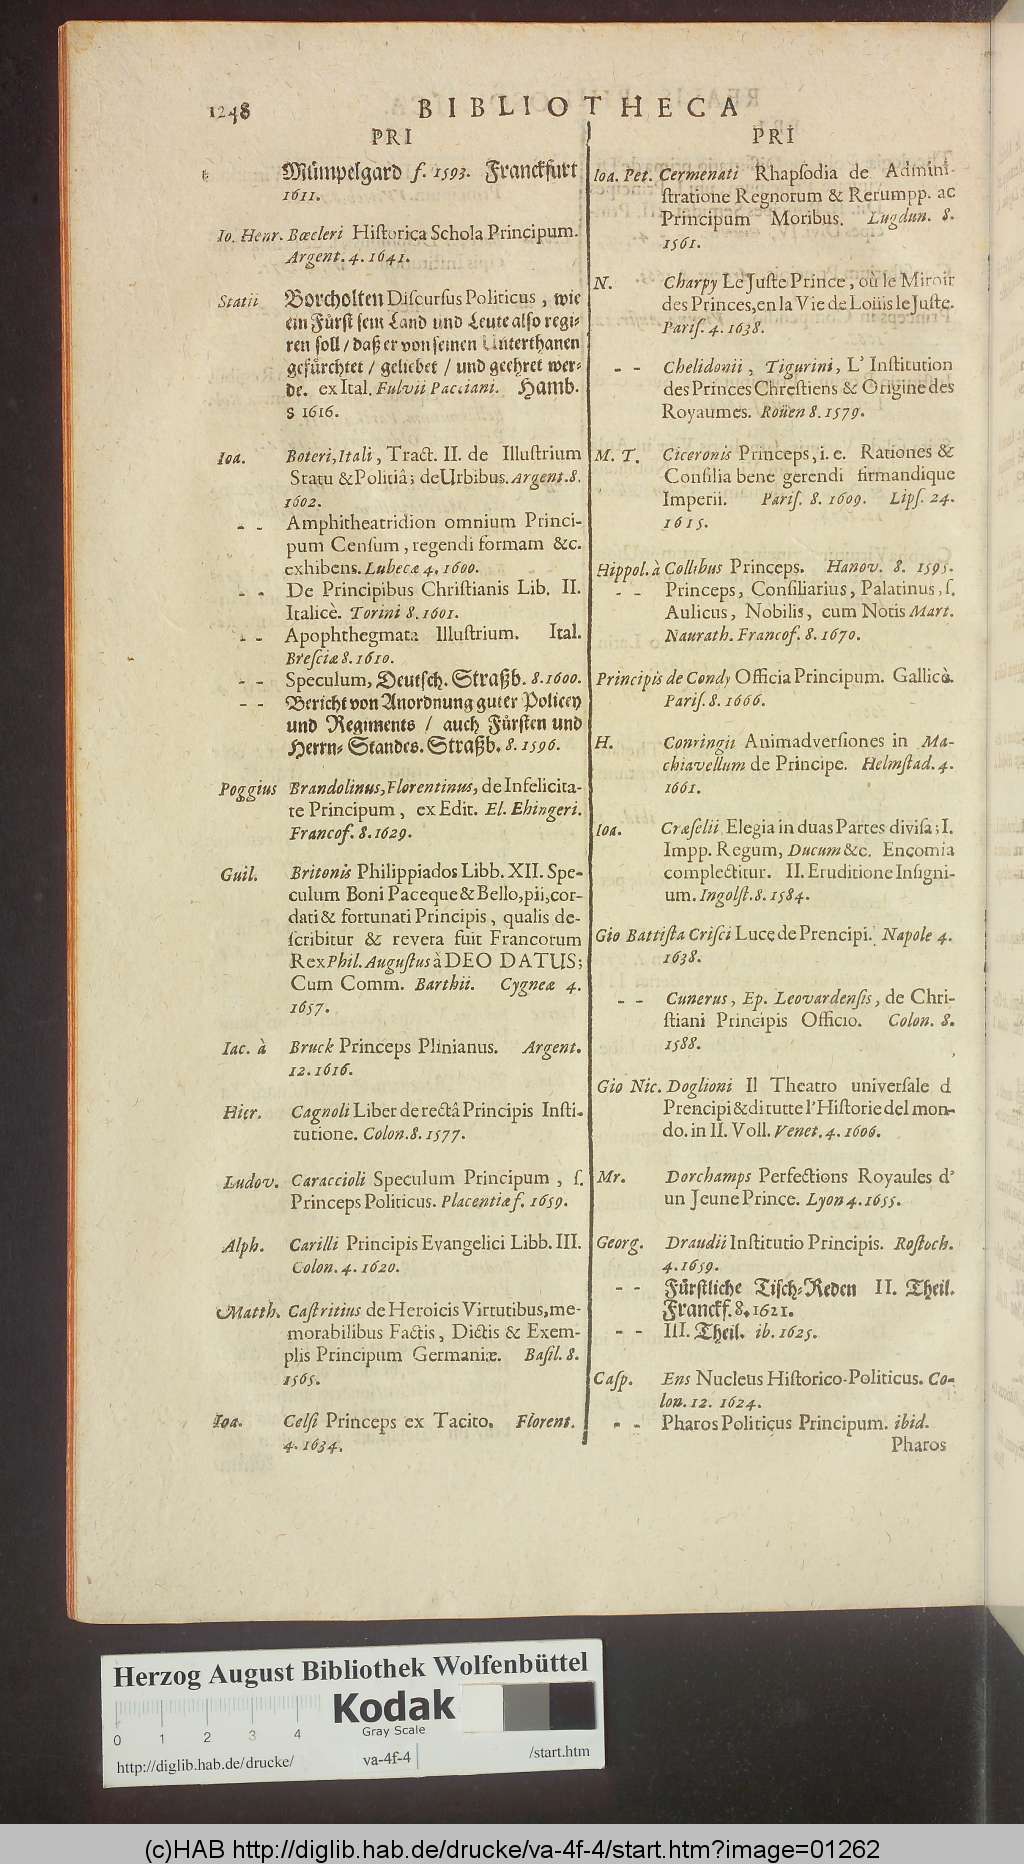 1248
BIBLIOTHECA
PRI
Mümpelgard f. 1593. Franckfurt
1611.
Io. Henr. Bœcleri Hiſtorica Schola Principum.
Argent. 4. 1641.
Statii Borcholten Diſcurſus Politicus, wie
ein Fürſt ſein Land und Leute alſo regi-
ren ſoll / daß er von ſeinen Unterthanen
gefürchtet / geliebet / und geehret wer-
de. ex Ital. Fulvii Pacciani. Hamb.
8 1616.
Ioa. Boteri, Itali, Tract. II. de Illuſtrium
Statu & Politiâ; de Urbibus. Argent. 8.
1602.
- - Amphitheatridion omnium Princi-
pum Cenſum, regendi formam &c.
exhibens. Lubecæ 4. 1600.
- - De Principibus Chriſtianis Lib. II.
Italicè. Torini 8. 1601.
- - Apophthegmata Illuſtrium. Ital.
Breſciæ 8. 1610.
- - Speculum, Deutſch. Straßb. 8. 1600.
- - Bericht von Anordnung guter Policey
und Regiments / auch Fürſten und
Herrn-Standes. Straßb. 8. 1596.
Poggius Brandolinus, Florentinus, de Infelicita-
te Principum, ex Edit. El. Ehingeri.
Francof. 8. 1629.
Guil. Britonis Philippiados Libb. XII. Spe-
culum Boni Paceque & Bello, pii, cor-
dati & fortunati Principis, qualis de-
ſcribitur & revera fuit Francorum
Rex Phil. Auguſtus à DEO DATUS;
Cum Comm. Barthii. Cygneæ 4.
1657.
Iac. à Bruck Princeps Plinianus. Argent.
12. 1616.
Hier. Cagnoli Liber de rectâ Principis Inſti-
tutione. Colon. 8. 1577.
Ludov. Caraccioli Speculum Principum, ſ.
Princeps Politicus. Placentiæ f. 1659.
Alph. Carilli Principis Evangelici Libb. III.
Colon. 4. 1620.
Matth. Caſtritius de Heroicis Virtutibus, me-
morabilibus Factis, Dictis & Exem-
plis Principum Germaniæ. Baſil. 8.
1565.
Ioa. Celſi Princeps ex Tacito. Florent.
4. 1634.
PRI
Ioa. Pet. Cermenati Rhapſodia de Admini-
ſtratione Regnorum & Rerumpp. ac
Principum Moribus. Lugdun. 8.
1561.
N. Charpy Le Juſte Prince, où le Miroir
des Princes, en la Vie de Loüis le Juſte.
Pariſ. 4. 1638.
- - Chelidonii, Tigurini, L' Inſtitution
des Princes Chreſtiens & Origine des
Royaumes. Roüen 8. 1579.
M. T. Ciceronis Princeps, i. e. Rationes &
Conſilia bene gerendi firmandique
Imperii. Pariſ. 8. 1609. Lipſ. 24.
1615.
Hippol. à Collibus Princeps. Hanov. 8. 1595.
- - Princeps, Conſiliarius, Palatinus, ſ.
Aulicus, Nobilis, cum Notis Mart.
Naurath. Francof. 8. 1670.
Principis de Condy Officia Principum. Gallicè.
Pariſ. 8. 1666.
H. Conringii Animadverſiones in Ma-
chiavellum de Principe. Helmſtad. 4.
1661.
Ioa. Cræſelii Elegia in duas Partes diviſa; I.
Impp. Regum, Ducum &c. Encomia
complectitur. II. Eruditione Inſigni-
um. Ingolſt. 8. 1584.
Gio Battiſta Criſci Luce de Prencipi. Napole 4.
1638.
- - Cunerus, Ep. Leovardenſis, de Chri-
ſtiani Principis Officio. Colon. 8.
1588.
Gio Nic. Doglioni Il Theatro univerſale d
Prencipi & di tutte l'Hiſtorie del mon-
do. in II. Voll. Venet. 4. 1606.
Mr. Dorchamps Perfections Royaules d'
un Jeune Prince. Lyon 4. 1655.
Georg. Draudii Inſtitutio Principis. Roſtoch.
4. 1659.
- - Fürſtliche Tiſch-Reden II. Theil.
Franckf. 8. 1621.
- - III. Theil. ib. 1625.
Caſp. Ens Nucleus Hiſtorico-Politicus. Co-
lon. 12. 1624.
- - Pharos Politicus Principum. ibid.
Pharos
Herzog August Bibliothek Wolfenbüttel
Kodak
Gray Scale
0 1 2 3 4
http://diglib.hab.de/drucke/ va-4f-4 /start.htm
(c)HAB http://diglib.hab.de/drucke/va-4f-4/start.htm?image=01262